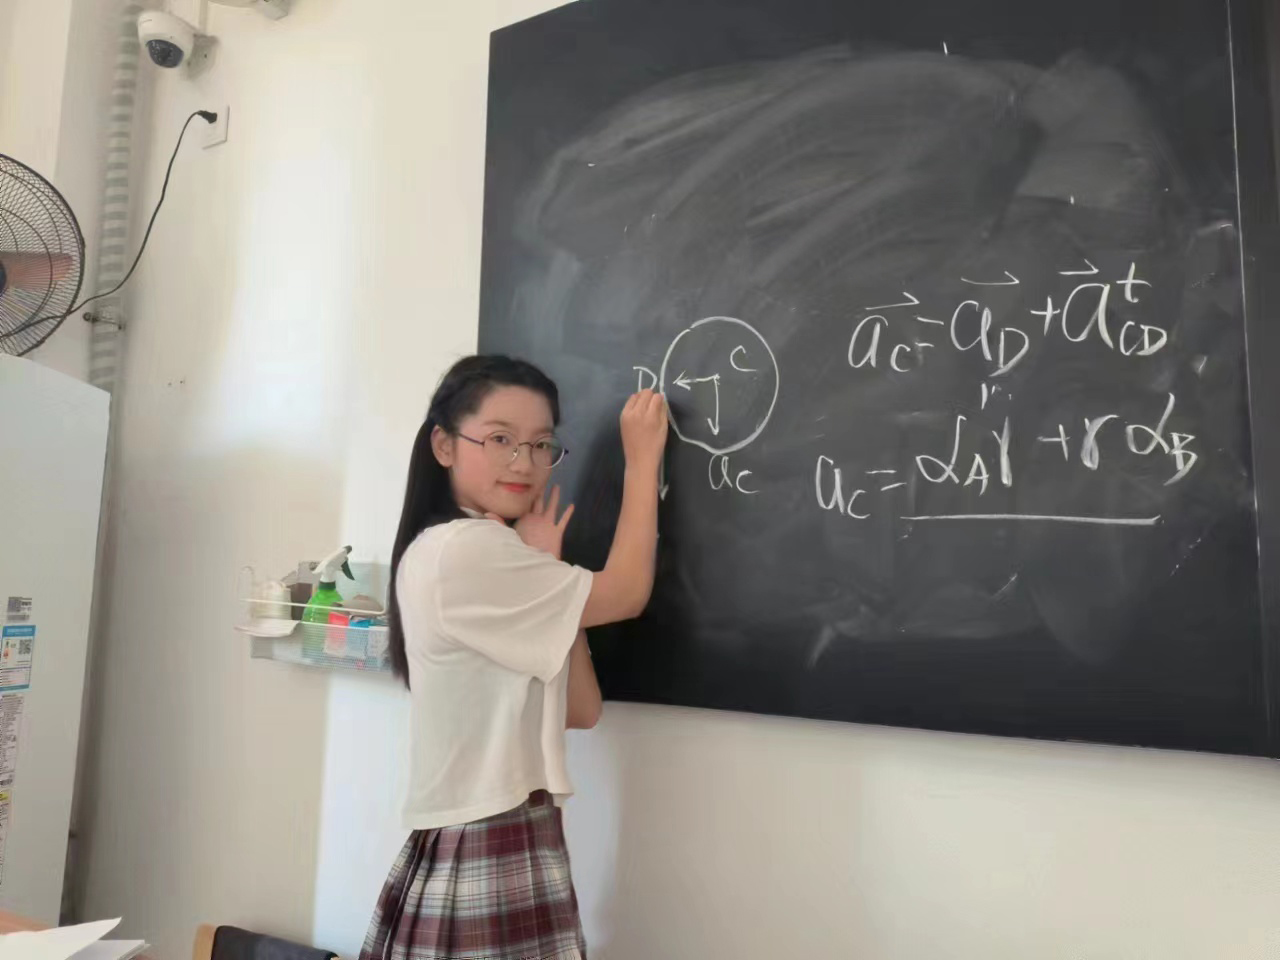 D
C
a_C
a⃗_C = a⃗_D + a⃗^t_CD
r
a_C = α_A r + r α_B